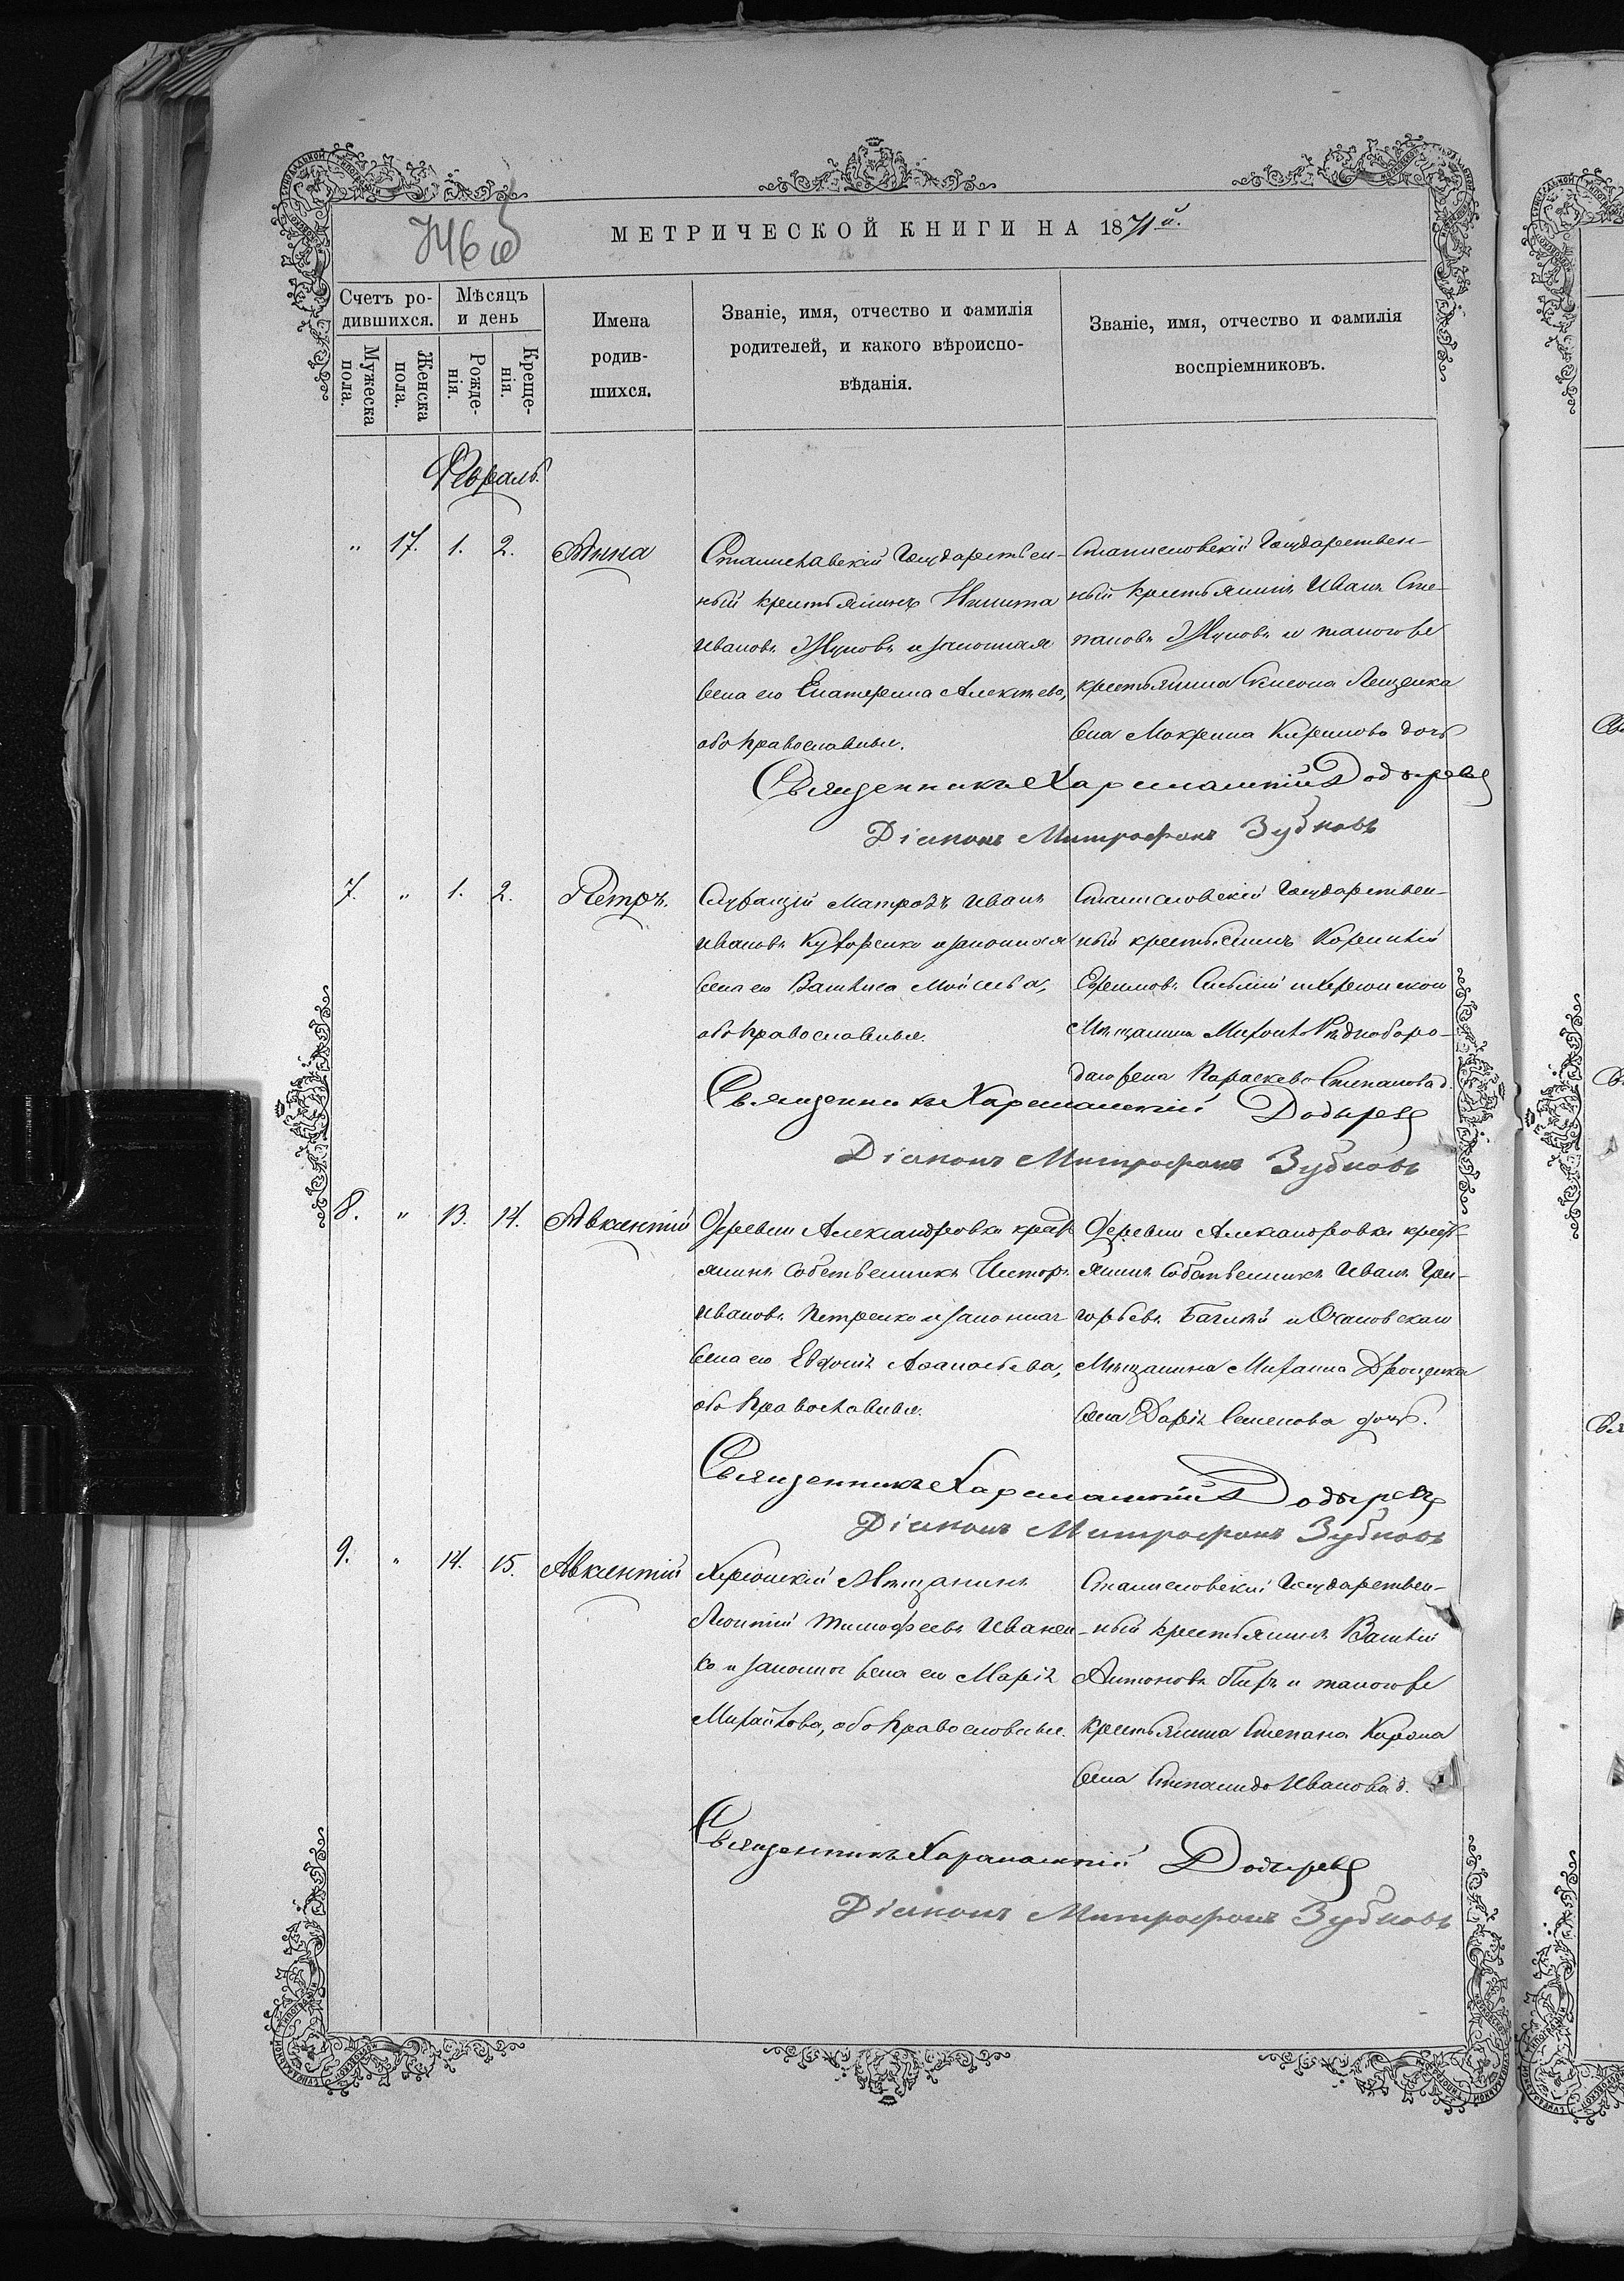 746 об
МЕТРИЧЕСКОЙ КНИГИ НА 1871й.
Счетъ ро-
дившихся.
Мѣсяцъ
и день
Мужеска
пола.
Женска
пола.
Рожде-
нія.
Креще-
нія.
Имена
родив-
шихся.
Званіе, имя, отчество и фамилія
родителей, и какого вѣроиспо-
вѣданія.
Званіе, имя, отчество и фамилія
воспріемниковъ.
Февраль.
" 17. 1. 2. Анна
Станиславскій Государствен-
ный крестьянинъ Никита
Ивановъ Жуковъ и законная
жена его Екатерина Алексѣева,
оба православные.
Станиславскій Государствен-
ный крестьянинъ Иванъ Сте-
пановъ Жуковъ и такогоже
крестьянина Лещенка
жена Макрина Кирилова дочь
Священникъ Харалампій
Діаконъ Митрофанъ Зубковъ
7. " 1. 2. Петръ.
Служащій матрозъ Иванъ
Ивановъ и законная
жена его Василиса Моисѣева,
оба православные.
Станиславскій Государствен-
ный крестьянинъ Корнилій
Ефимовъ и Херсонскаго
Мѣщанина Рядноборо-
даго жена Параскева Степанова д.
Священникъ Харалампій
Діаконъ Митрофанъ Зубковъ
8. " 13. 14. Авксентій
Деревни Александровки крестъ
янинъ Собственникъ
Ивановъ Петренко и законная
жена его Евдокія Афанасьева,
оба православные.
Деревни Александровки крестъ-
янинъ Собственникъ Иванъ Гри-
горьевъ и Очаковскаго
Мѣщанина Михаила
жена Дарія Семенова дочь.
Священникъ Харалампій
Діаконъ Митрофанъ Зубковъ
9. " 14. 15. Авксентій
Херсонскій Мѣщанинъ
Леонтій Тимофеевъ Иванен-
ко и законная жена его Марія
Михайлова, оба православные.
Станиславскій Государствен-
ный крестьянинъ Василій
Антоновъ и такогоже
крестьянина Степана
жена Степанида Иванова д.
Священникъ Харалампій
Діаконъ Митрофанъ Зубковъ